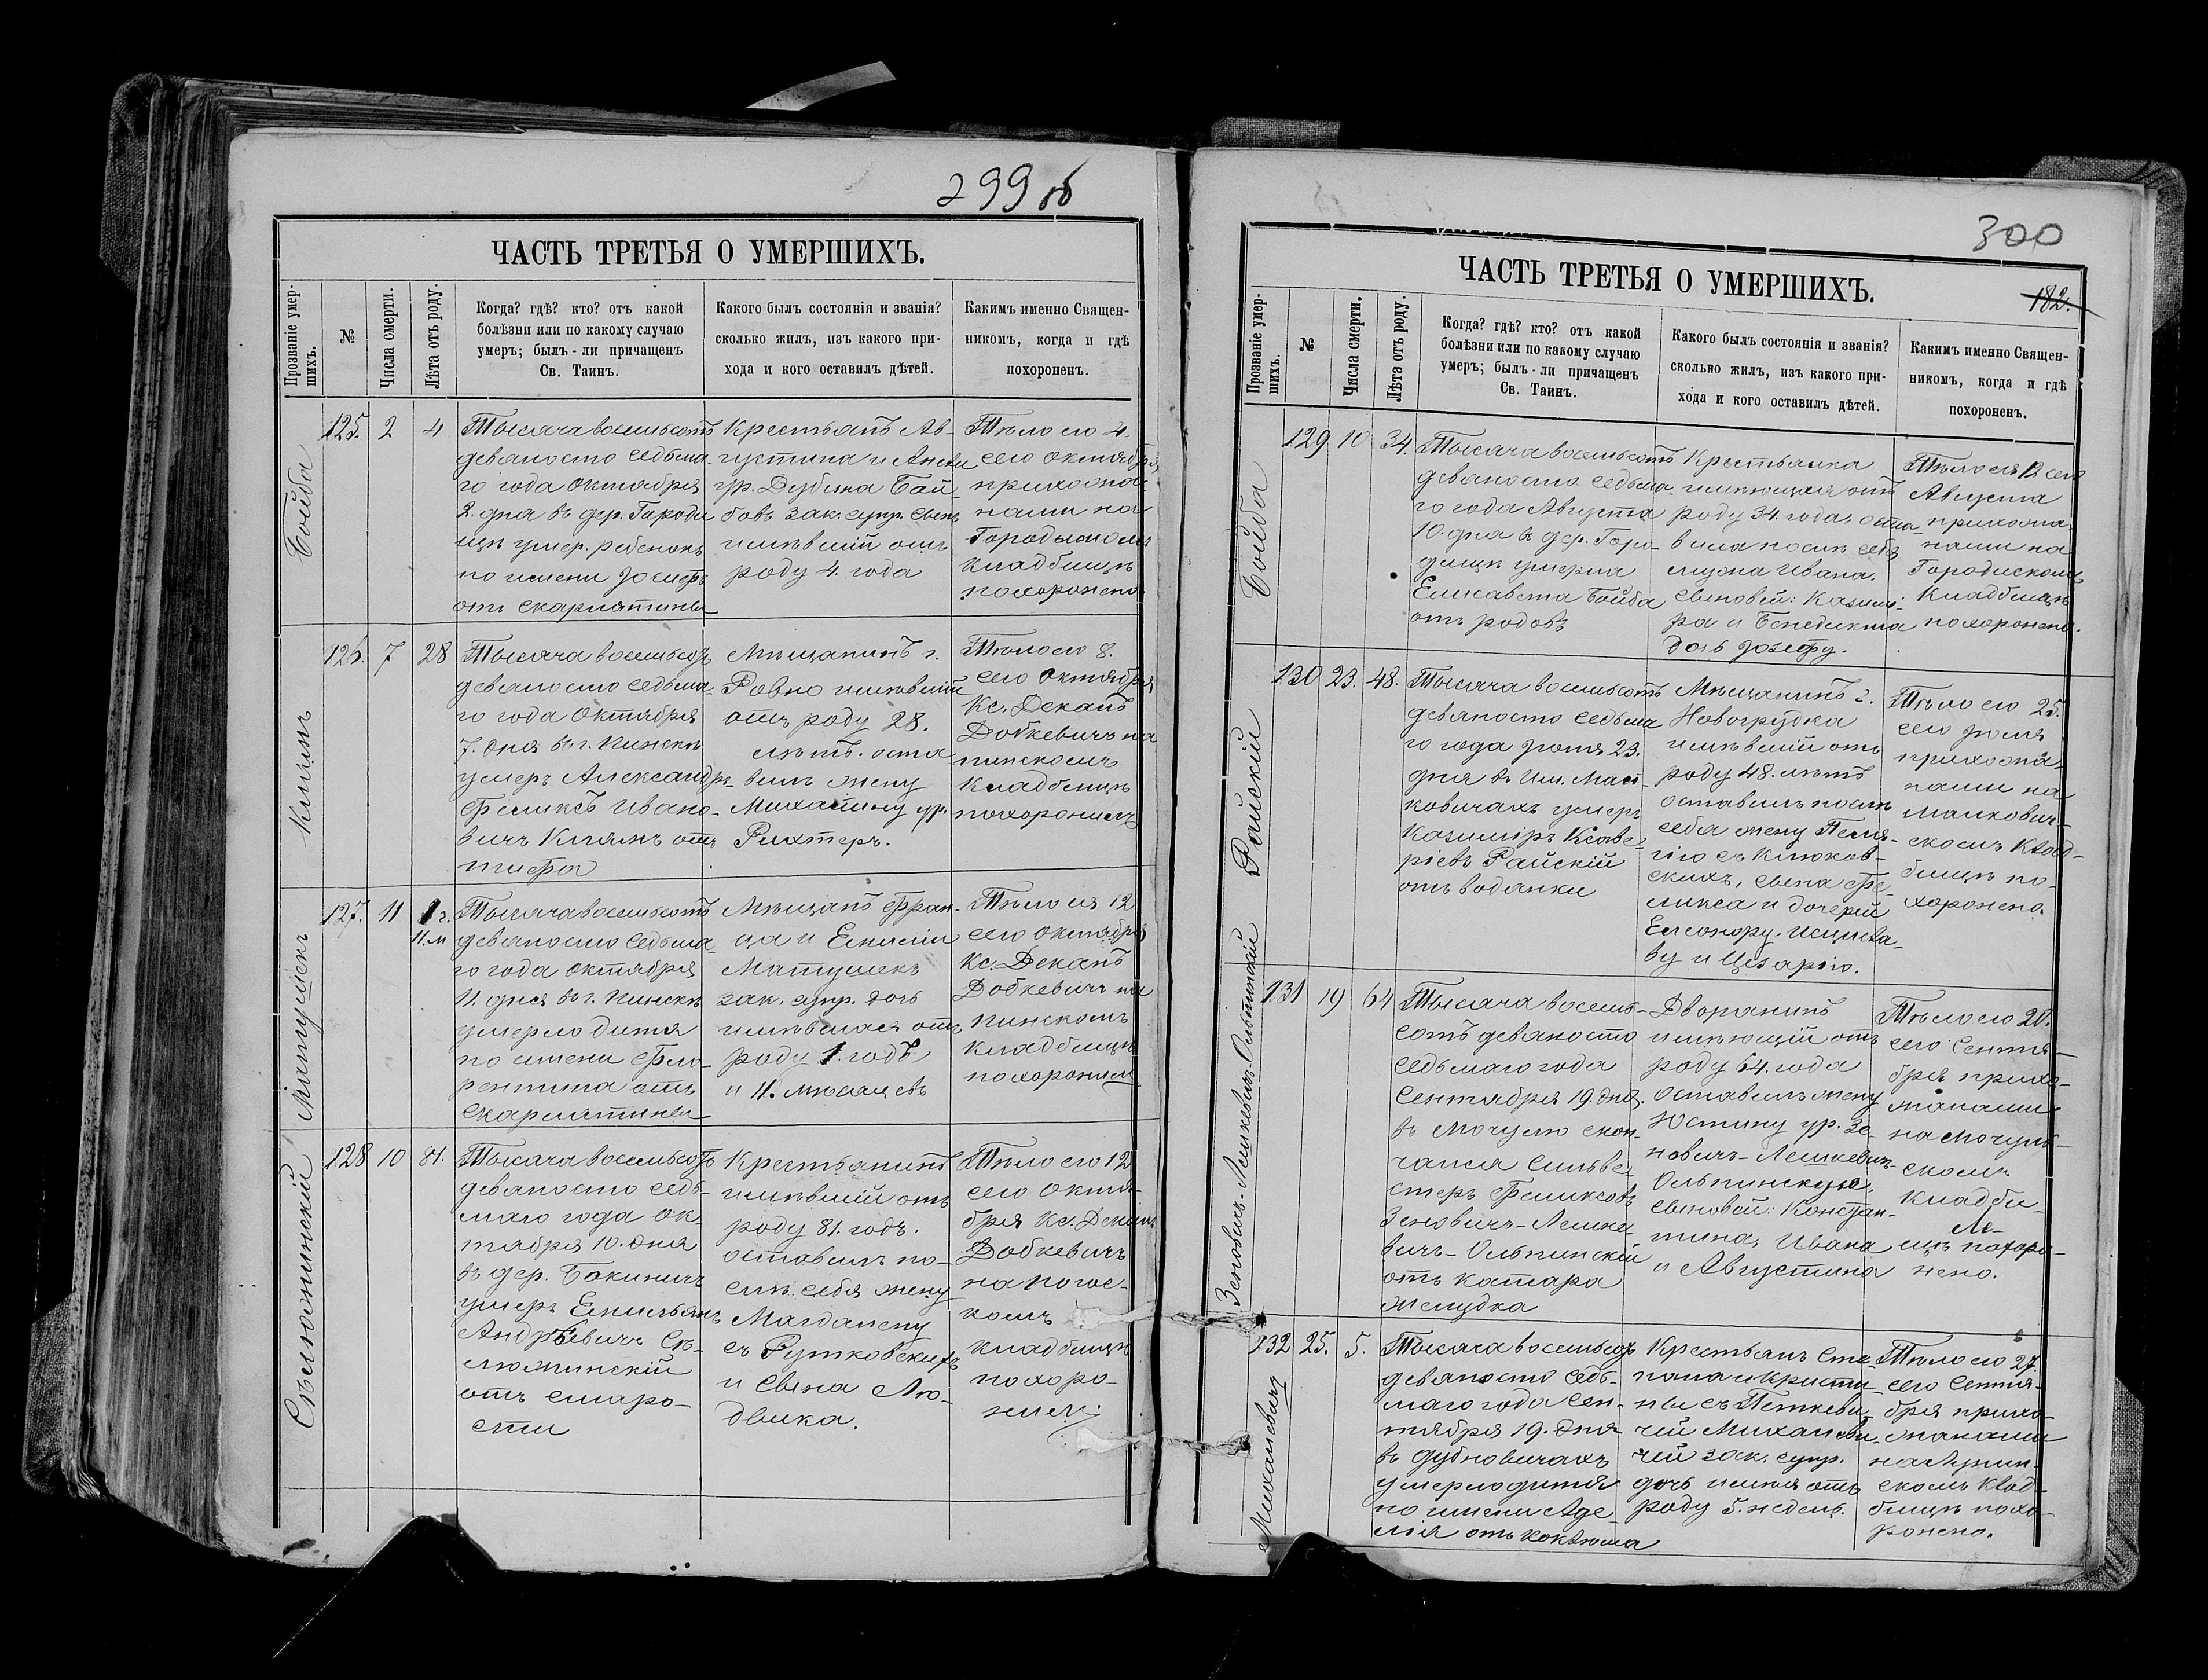 299 об
ЧАСТЬ ТРЕТЬЯ О УМЕРШИХЪ.
Прозваніе умер-
шихъ.
№
Числа смерти.
Лѣта отъ роду.
Когда? гдѣ? кто? отъ какой
болѣзни или по какому случаю
умеръ; былъ-ли причащенъ
Св. Таинъ.
Какого былъ состоянія и званія?
сколько жилъ, изъ какого при-
хода и кого оставилъ дѣтей.
Какимъ именно Священ-
никомъ, когда и гдѣ
похороненъ.
Бойба
125. 2 4
Тысяча восемьсотъ
девяносто седьма-
го года Октября
2. дня въ дер. Городи
щѣ умер. ребенокъ
по имени Іосифъ
отъ скарлатины
Крестьянъ Ав-
густина и Анны
ур. Дубина Бой
бовъ зак. супр. сынъ
имѣвшій отъ
роду 4. года
Тѣло его 4.
сего Октября
прихожа-
нами на
Городыском
кладбищѣ
похоронено
Климъ
126. 7 28
Тысяча восемьсотъ
девяносто седьма-
го года Октября
7. дня въ г. Пинскѣ
умеръ Александръ-
Феликсъ Ивано-
вичъ Климъ отъ
тифа
Мѣщанинъ г.
Ровно имѣвшій
отъ роду 28.
лѣтъ. оста
вилъ жену
Михалину ур.
Рихтеръ.
Тѣло его 8.
сего Октября
Кс. Деканъ
Добкевичъ на
пинскомъ
кладбищѣ
похоронилъ
Матушекъ
127. 11 1 г.
11. м
Тысяча восемьсотъ
девяносто седьма-
го года Октября
11. дня въ г. Пинскѣ
умерло дитя
по имени Фло-
рентина отъ
скарлатины
Мѣщанъ Фран-
ца и Емиліи
Матушекъ
зак. супр. дочь
имѣвшая отъ
роду 1. годъ
и 11. мѣсяцевъ
Тѣло ея 12
сего Октября
Кс. Деканъ
Добкевичъ на
Пинскомъ
кладбищѣ
похоронилъ
128 10 81.
Тысяча восемьсотъ
девяносто седь-
маго года Ок-
тября 10. дня
въ дер. Бокиничъ
умеръ Емильянъ
Андрѣевичъ Сѣ-
люжинскій
отъ старо-
сти
Крестьянинъ
имѣвшій отъ
роду 81. годъ.
оставилъ по-
слѣ себя жену
Магдалену
съ Рутковскихъ
и сына Лю-
двика.
Тѣло его 12
сего Октя-
бря Кс. Деканъ
Добкевичъ
на погос-
комъ
кладбищѣ
похоро-
нилъ
300
182.
ЧАСТЬ ТРЕТЬЯ О УМЕРШИХЪ.
Прозваніе умер-
шихъ.
№
Числа смерти.
Лѣта отъ роду.
Когда? гдѣ? кто? отъ какой
болѣзни или по какому случаю
умеръ; былъ-ли причащенъ
Св. Таинъ.
Какого былъ состоянія и званія?
сколько жилъ, изъ какого при-
хода и кого оставилъ дѣтей.
Какимъ именно Священ-
никомъ, когда и гдѣ
похороненъ.
Бойба
129 10 34.
Тысяча восемьсотъ
девяносто седьма-
го года Августа
10. дня въ дер. Горо-
дищѣ умерла
Елисавета Бойба
отъ родовъ
Крестьянка
имѣющая отъ
роду 34. года, оста-
вила послѣ себя
мужа Ивана.
сыновей: Казими-
ра и Бенедикта
дочь Юзефу.
Тѣло ея 12 сего
Августа
прихожа-
нами на
Городискомъ
Кладбищѣ
похоронено.
Райскій
130 23. 48.
Тысяча восемьсотъ
девяносто седьма
го года Іюля 23.
дня въ Им. Мал-
ковичахъ умеръ
Казиміръ Ксаве-
ріевъ Райскій
отъ водянки
Мѣщанинъ г.
Новогрудка
имѣвшій отъ
роду 48. лѣтъ
оставилъ послѣ
себя жену Пела-
гію съ Клюков-
скихъ, сына Фе-
ликса и дочерей
Елеонору,
ву и Цезарію.
Тѣло его 25.
сего Іюля
прихожа-
нами на
Малкович-
скомъ клад-
бищѣ по-
хоронено.
Зеновичъ-Лешкевичъ-Ольпинскій
131 19 64
Тысяча восемь-
сотъ девяносто
седьмаго года
Сентября 19. дня.
въ Мочулю скон-
чался Сильве-
стеръ Феликсовъ
Зеновичъ-Лешке
вичъ-Ольпинскій
отъ катара
желудка
Дворянинъ
имѣющій отъ
роду 64. года
Оставилъ жену
Юстину ур. Зе-
новичъ-Лешкевичъ-
Ольпинскую,
сыновей: Констан-
тина, Ивана
и Августина
Тѣло его 20.
сего Сентя-
бря прихо-
жанами
на Мочуль-
скомъ
кладби-
щѣ похоро-
нено.
Михалевичъ
132 25. 5.
Тысяча восемьсотъ
девяносто седь-
маго года Сен-
тября 19. дня
въ Дубновичахъ
умерло дитя
по имени Аде
лія отъ коклюша
Крестьянъ Сте-
пана и Кристи-
ны съ Петкеви-
чей Михалеви-
чей зак. супр.
дочь имѣя отъ
роду 5. недель.
Тѣло его 27.
сего Сентя-
бря прихо-
жанами
на Лунин-
скомъ клад-
бищѣ похо-
ронено.